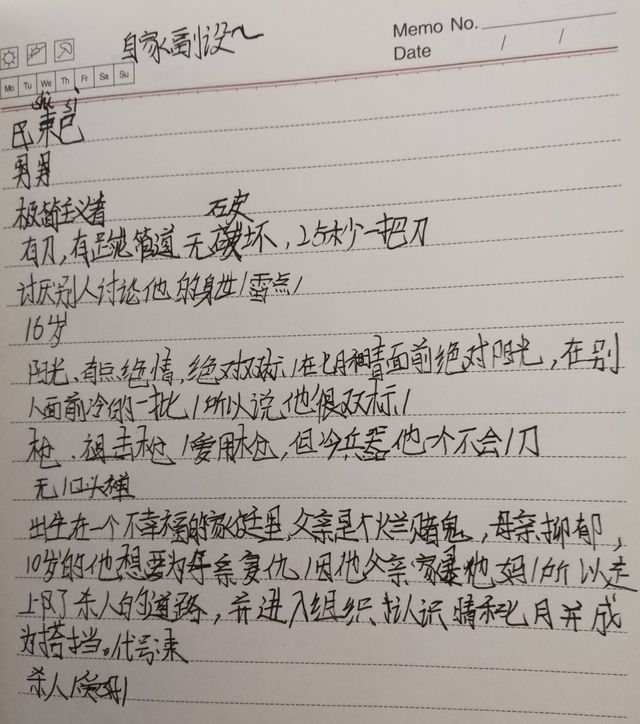 自家副设~
Memo No.
Date / /
Mo Tu We Th Fr Sa Su
shù sì
巴束巳
男男
极简主义者
破
有刀,有足能管道无破坏,25秒一把刀
讨厌别人讨论他的身世/雷点/
16岁
阳光、有点绝情,绝对双标/在七月和晴面前绝对阳光,在别
人面前冷的一批/所以说他很双标/
枪、狙击枪/爱用枪,但冷兵器他一个不会/刀
无/口头禅
出生在一个不幸福的家庭里,父亲是个烂赌鬼,母亲抑郁,
10岁的他想要为母亲复仇/因他父亲家暴他妈/所以走
上了杀人的道路,并进入组织认识晴和七月并成
为搭挡。代号束
杀人/爱好/